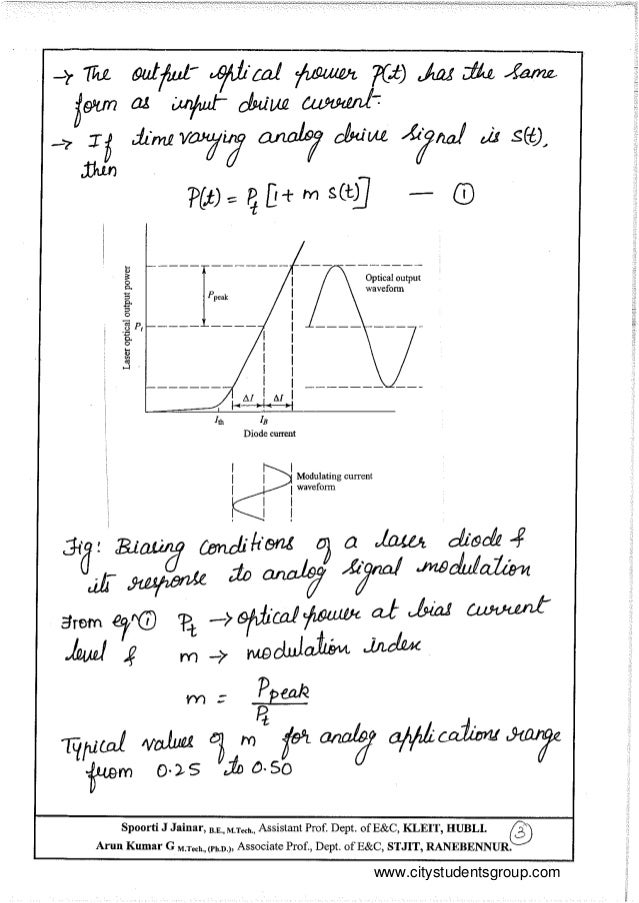 → The output optical power P(t) has the same
form as input drive current.
→ If time varying analog drive signal is s(t),
then
P(t) = Pt [1 + m s(t)] — ①
Laser optical output power
Ppeak
Pt
Optical output
waveform
ΔI ΔI
Ith IB
Diode current
Modulating current
waveform
Fig: Biasing conditions of a laser diode &
its response to analog signal modulation
From eqn ① Pt → optical power at bias current
level & m → modulation index
m = Ppeak
Pt
Typical values of m for analog applications range
from 0.25 to 0.50
Spoorti J Jainar, B.E., M.Tech., Assistant Prof. Dept. of E&C, KLEIT, HUBLI.
③
Arun Kumar G M.Tech., (Ph.D.), Associate Prof., Dept. of E&C, STJIT, RANEBENNUR.
www.citystudentsgroup.com